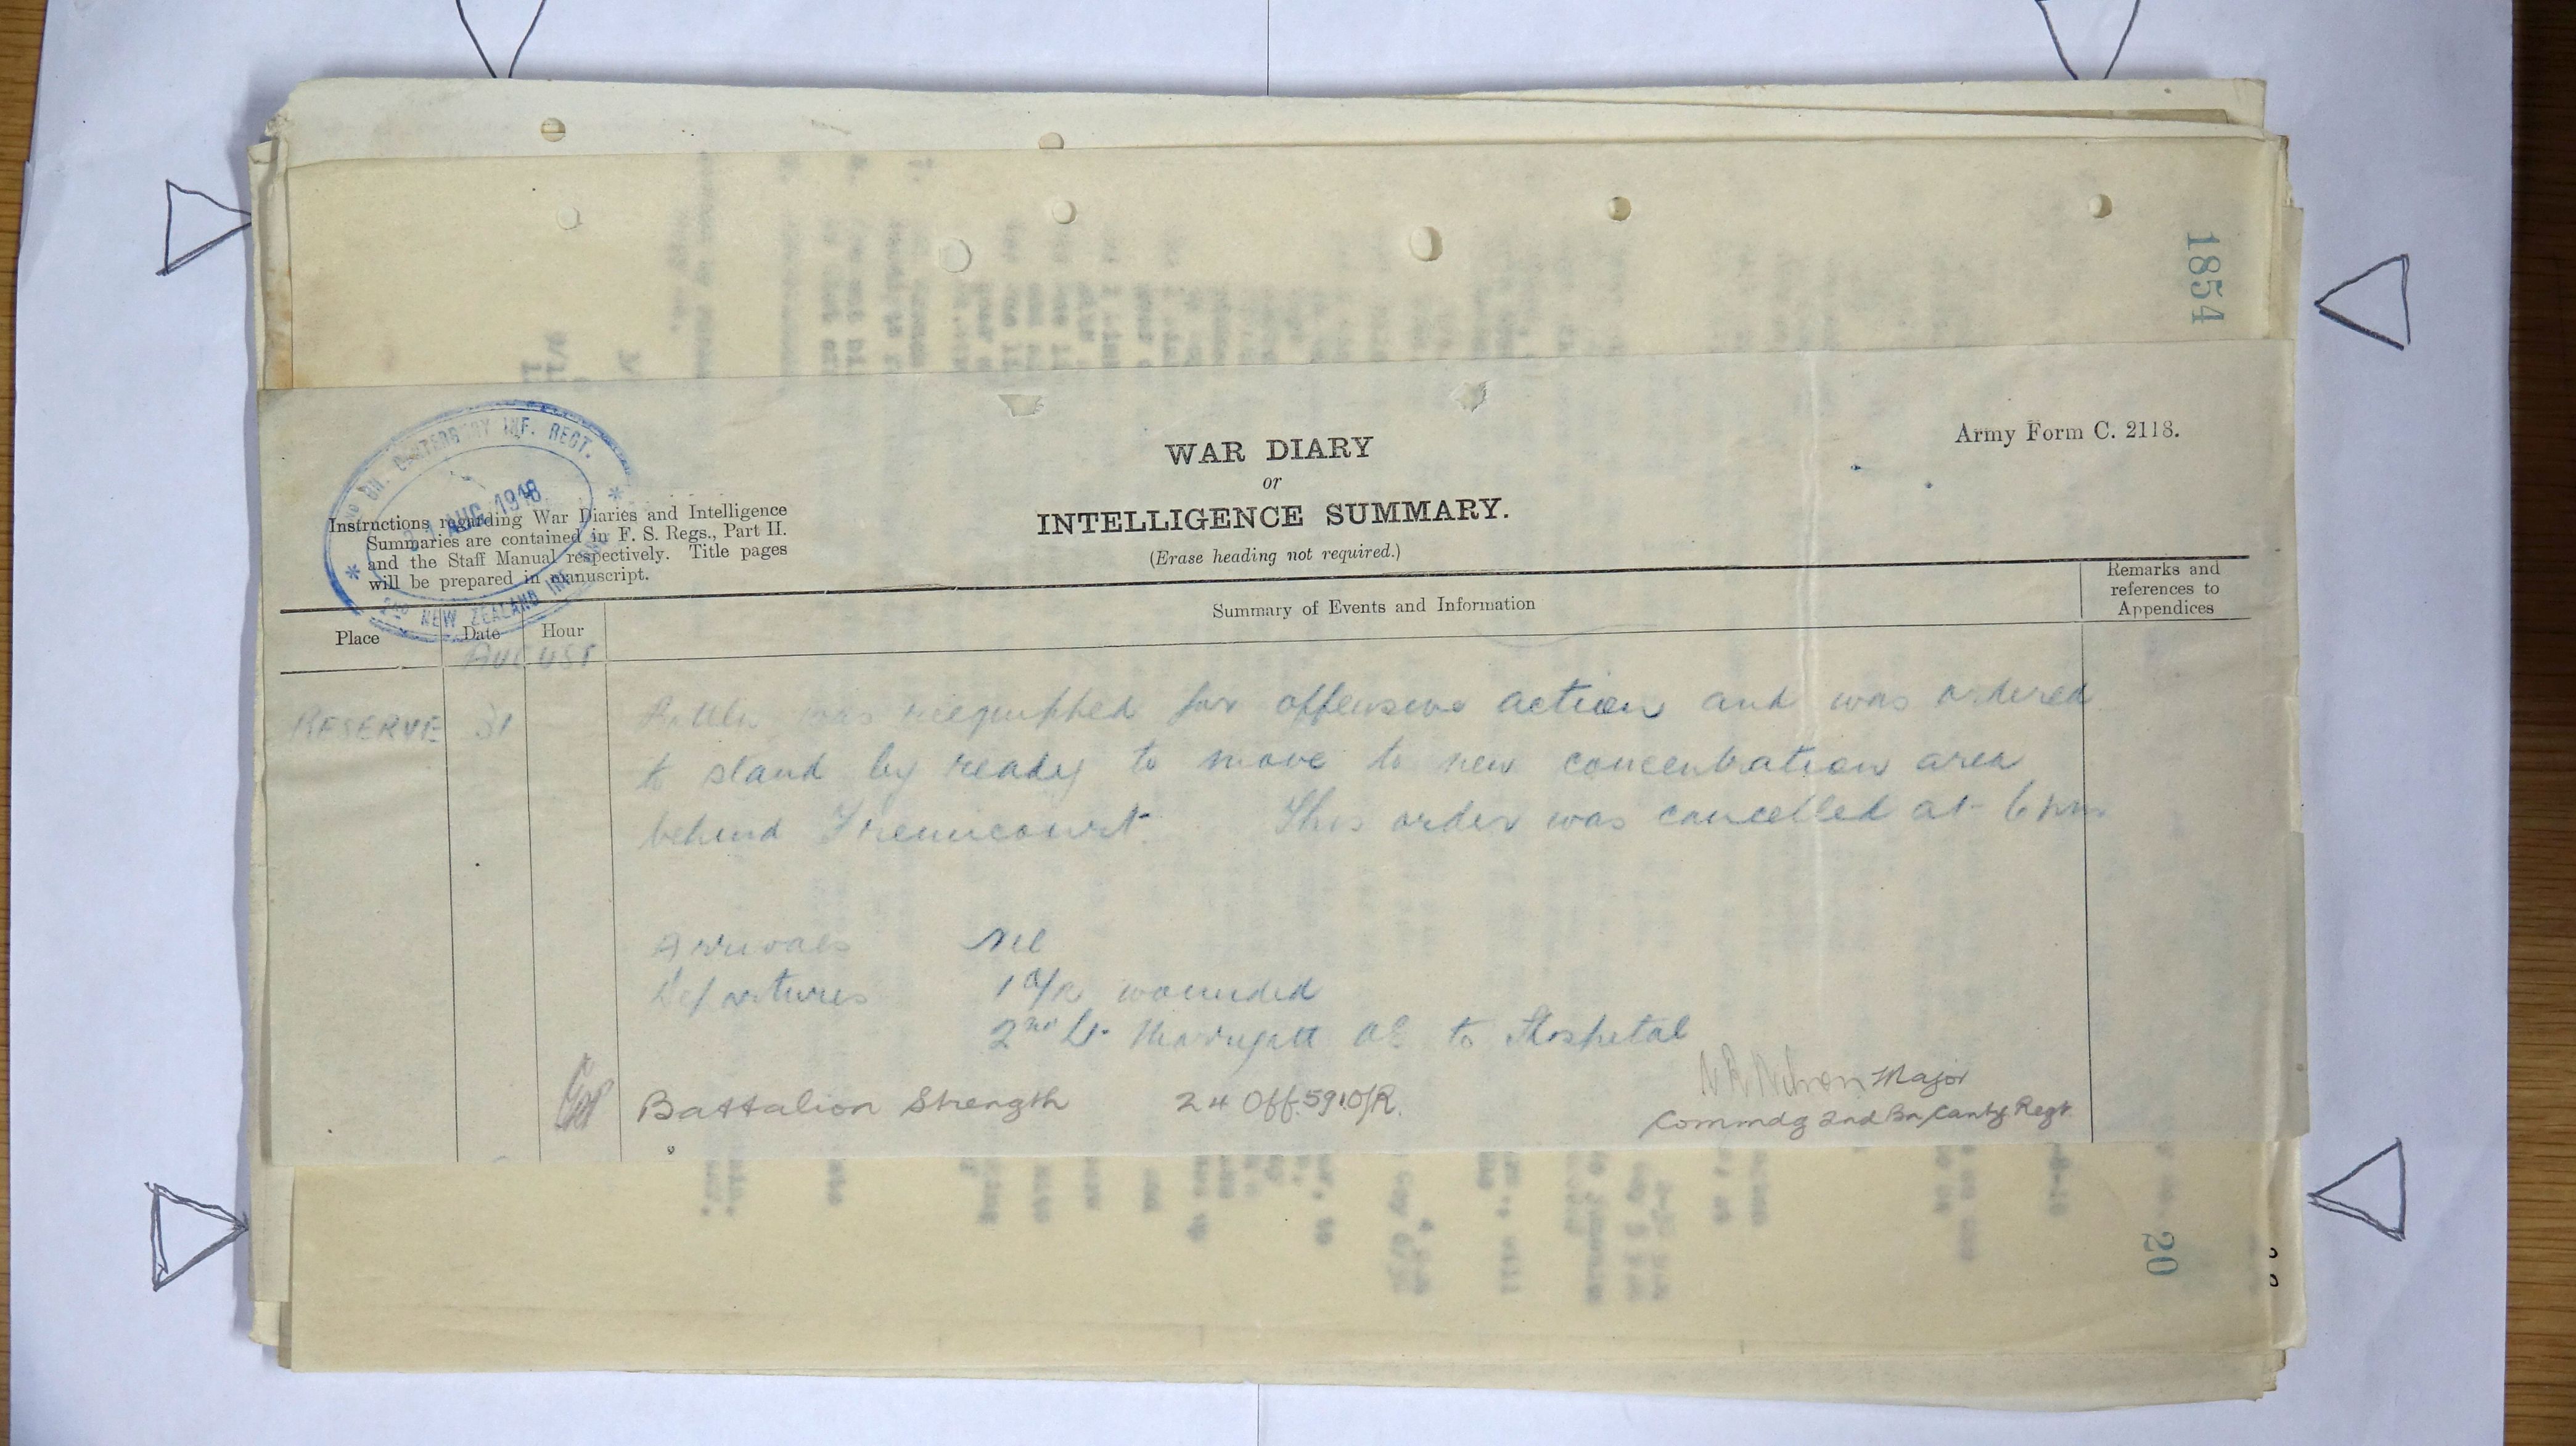 1854
Army Form C. 2118.
WAR DIARY
or
INTELLIGENCE SUMMARY.
(Erase heading not required.)
BN. CANTERBURY INF. REGT.
AUG 1918
2ND NEW ZEALAND INF.
Instructions regarding War Diaries and Intelligence
Summaries are contained in F. S. Regs., Part II.
and the Staff Manual respectively. Title pages
will be prepared in manuscript.
Place Date Hour Summary of Events and Information
Remarks and
references to
Appendices
AUGUST
RESERVE 31 Battln was reequipped for offensive action and was ordered
to stand by ready to move to new concentration area
behind Fremicourt. This order was cancelled at 6 pm
Arrivals Nil
Departures 1 O/R wounded
2nd Lt. to Hospital
Battalion Strength 24 Off. 591 O/R.
Major
Commdg 2nd Bn Canty Regt.
20